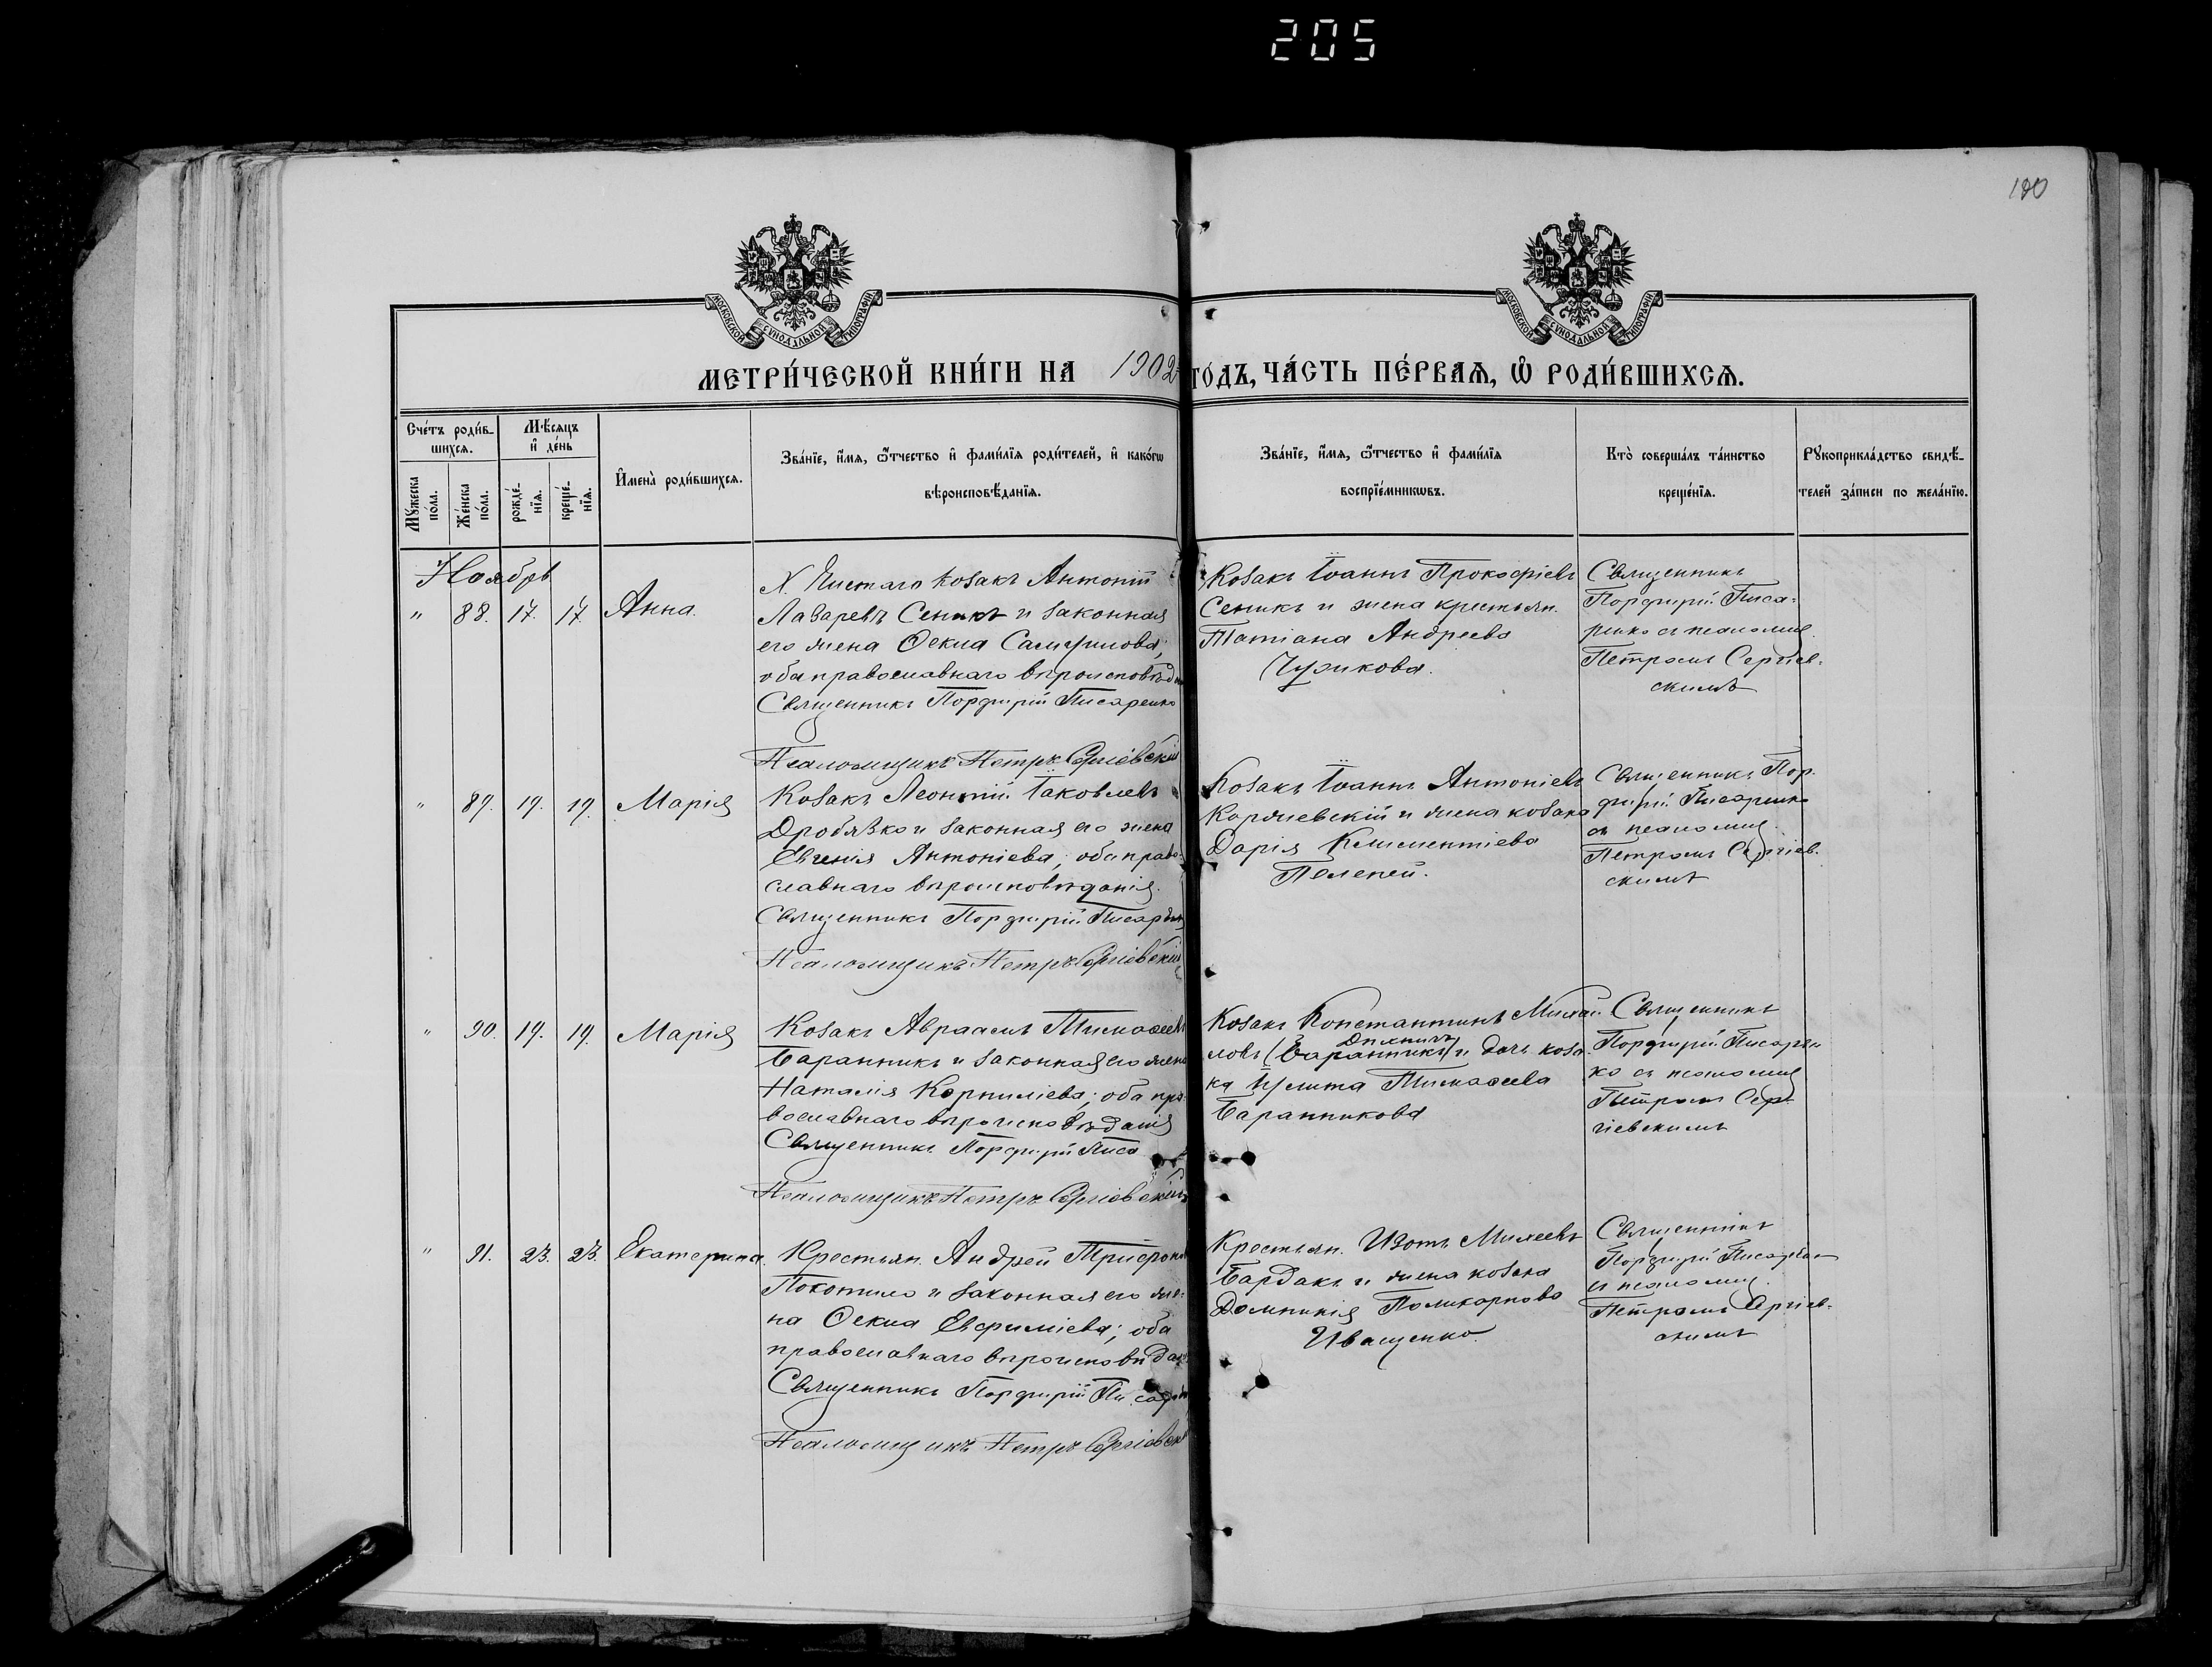 205
180
МОСКОВСКОЙ СѴНОДАЛЬНОЙ ТИПОГРАФІИ
МОСКОВСКОЙ СѴНОДАЛЬНОЙ ТИПОГРАФІИ
МЕТРИ́ЧЕСКОЙ КНИ́ГИ НА 1902 ГО́ДЪ, ЧА́СТЬ ПЕ́РВАѦ, Ѡ҆ РОДИ́ВШИХСѦ.
Сче́тъ роди́в-
шихсѧ.
Мꙋ́жеска по́ла.
Же́нска по́ла.
Мѣ́сѧцъ
и҆ де́нь
рожде́-нїѧ.
креще́-нїѧ.
И҆мена̀ роди́вшихсѧ.
Зва́нїе, и҆́мѧ, ѻ҆́тчество и҆ фами́лїѧ роди́телей, и҆ како́гѡ
вѣроисповѣ́данїѧ.
Зва́нїе, и҆́мѧ, ѻ҆́тчество и҆ фами́лїѧ
воспрїе́мникѡвъ.
Кто̀ соверша́лъ та́инство
креще́нїѧ.
Рꙋкоприкла́дство свидѣ́-
телей за́писи по жела́нїю.
Ноябрь
" 88. 17. 17. Анна.
Х. Чистаго козакъ Антоній
Лазаревъ Сеникъ и законная
его жена Ѳекла
оба православнаго вѣроисповѣдан
Священникъ Порфирій Писаренко
Псаломщикъ Петръ Сергіевскій
Козакъ Іоаннъ Прокофіевъ
Сеникъ и жена крестьян.
Татіана Андреева
Чужикова.
Священникъ
Порфирій Писа-
ренко съ псаломщ.
Петромъ Сергіев-
скимъ
" 89. 19. 19. Марія
Козакъ Леонтій Іаковлевъ
Дробязко и законная его жена
Евгенія Антоніева; оба право-
славнаго вѣроисповѣданія.
Священникъ Порфирій Писаренк
Псаломщикъ Петръ Сергіевскій
Козакъ Іоаннъ Антоніевъ
Коржевскій и жена козака
Дарія Климентіева
Пелепей.
Священникъ Пор-
фирій Писаренко
съ псаломщ.
Петромъ Сергіев-
скимъ
" 90. 19. 19. Марія
Козакъ Авраамъ Тимоѳеевъ
Баранникъ и законная его жена
Наталія Корниліева; оба пра-
вославнаго вѣроисповѣданія
Священникъ Порфирій Писа
Псаломщикъ Петръ Сергіевскій
Козакъ Константинъ Михаи-
ловъ (Баранникъ) и дочь коза-
ка Улита Тимоѳеева
Баранникова
Священникъ
Порфирій Писарен
ко съ псаломщ
Петромъ Сер-
гіевскимъ
" 91. 23. 23. Екатерина.
Крестьян. Андрей Трифонов
Покотило и законная его же-
на Ѳекла Евфиміева; оба
православнаго вѣроисповѣдан
Священникъ Порфирій Писарен
Псаломщикъ Петръ Сергіевск
Крестьян. Изотъ Михеевъ
Бардакъ и жена козака
Домникія Поликарпова
Иващенко.
Священникъ
Порфирій Писаренко
съ псаломщ.
Петромъ Сергіев-
скимъ